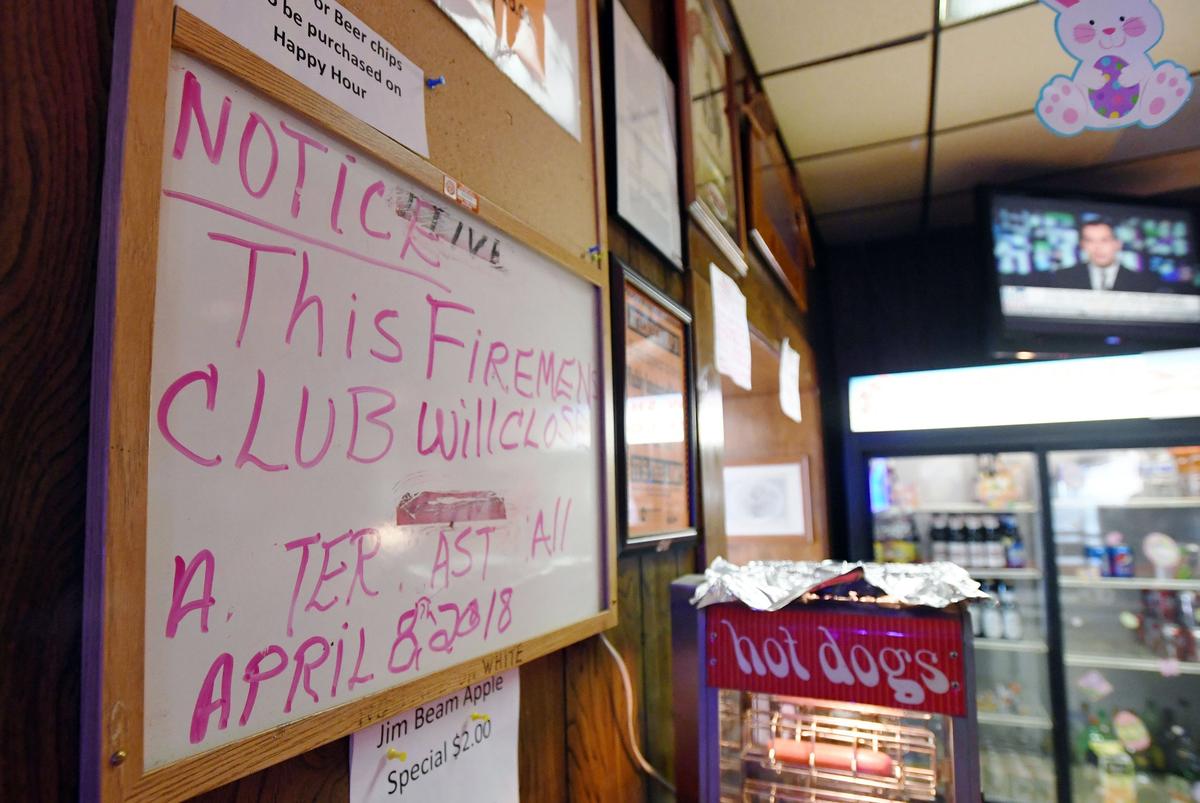 or Beer chips
be purchased on
Happy Hour
NOTICE
This FIREMENS
CLUB will CLOSE
A. TER. AST All
APRIL 8th 2018
WHITE
Jim Beam Apple
Special $2.00
hot dogs